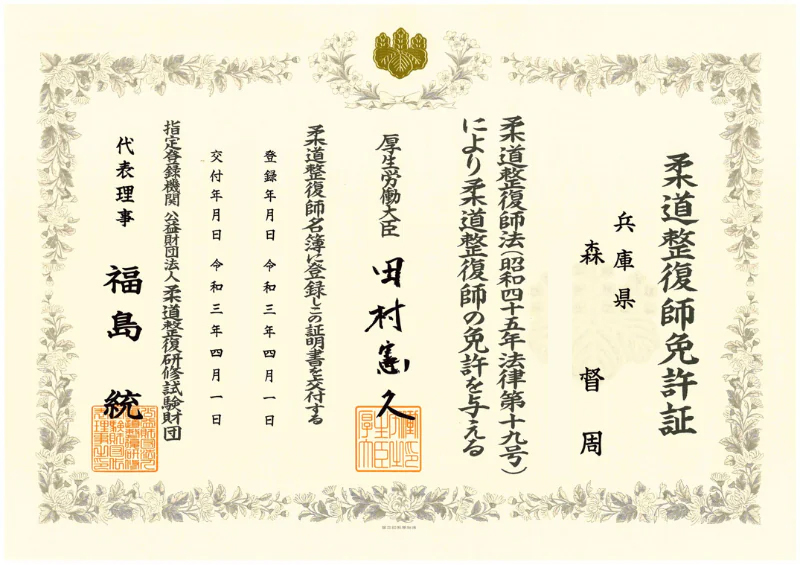 柔道整復師免許証
兵庫県
森 督周
柔道整復師法(昭和四十五年法律第十九号)
により柔道整復師の免許を与える
厚生労働大臣 田村憲久
柔道整復師名簿に登録しこの証明書を交付する
登録年月日 令和三年四月一日
交付年月日 令和三年四月一日
指定登録機関 公益財団法人柔道整復研修試験財団
代表理事 福島 統